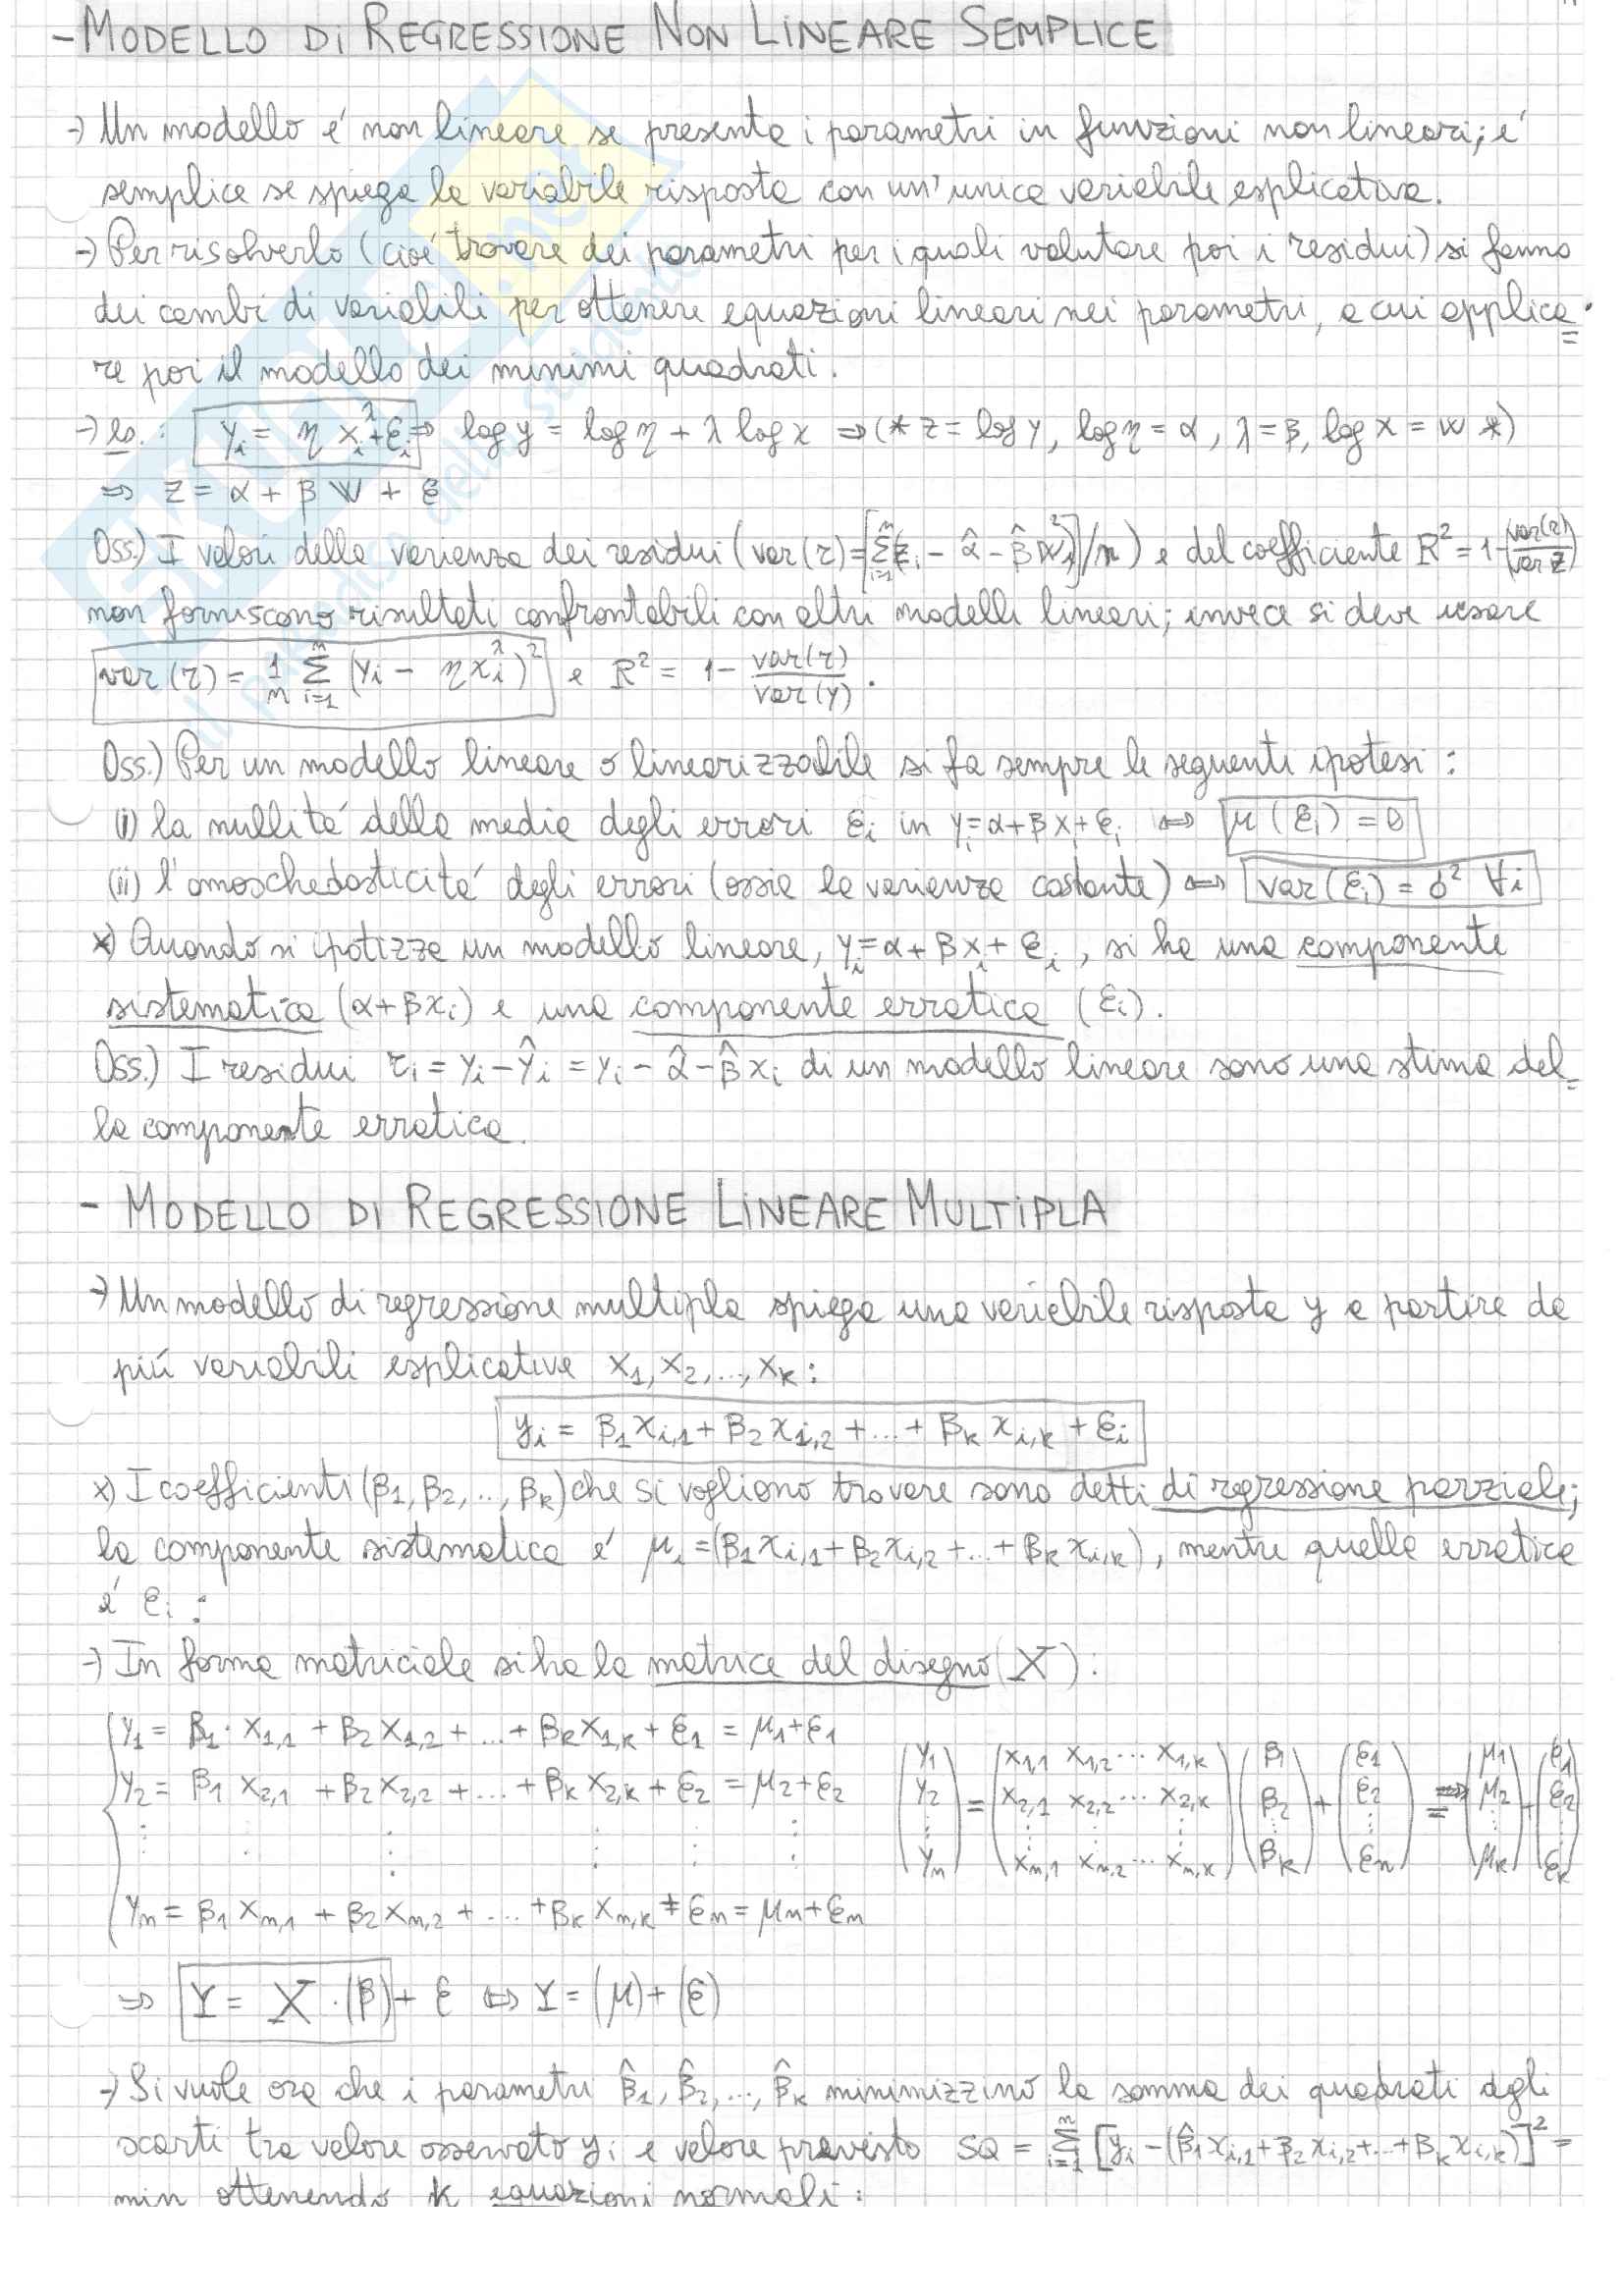 - MODELLO DI REGRESSIONE NON LINEARE SEMPLICE
→ Un modello é non lineare se presenta i parametri in funzioni non lineari; é
semplice se spiega la variabile risposta con un'unica variabile esplicativa.
→ Per risolverlo (cioé trovare dei parametri per i quali valutare poi i residui) si fanno
dei cambi di variabili per ottenere equazioni lineari nei parametri, a cui applica=
re poi il modello dei minimi quadrati.
→ Es.: yᵢ = η xᵢ^λ + εᵢ ⇒ log y = log η + λ log x ⇒ (* z = log y, log η = α, λ = β, log x = w *)
⇒ z = α + β w + ε
Oss.) I valori della varianza dei residui (var(r) = [Σᵢ₌₁ⁿ (zᵢ - α̂ - β̂ wᵢ)²]/n) e del coefficiente R² = 1 - (var(r)/var z)
non forniscono risultati confrontabili con altri modelli lineari; invece si deve usare
var(r) = 1/n Σᵢ₌₁ⁿ (yᵢ - η xᵢ^λ)² e R² = 1 - var(r)/var(y).
Oss.) Per un modello lineare o linearizzabile si fa sempre le seguenti ipotesi:
(i) la nullitá della media degli errori εᵢ in yᵢ = α + β xᵢ + εᵢ ⇔ μ(εᵢ) = 0
(ii) l'omoschedasticitá degli errori (ossia la varianza costante) ⇔ var(εᵢ) = σ² ∀i
x) Quando si ipotizza un modello lineare, yᵢ = α + β xᵢ + εᵢ, si ha una componente
sistematica (α + β xᵢ) e una componente erratica (εᵢ).
Oss.) I residui rᵢ = yᵢ - ŷᵢ = yᵢ - α̂ - β̂ xᵢ di un modello lineare sono una stima del=
la componente erratica.
- MODELLO DI REGRESSIONE LINEARE MULTIPLA
→ Un modello di regressione multipla spiega una variabile risposta y a partire da
piú variabili esplicative x₁, x₂, ..., xₖ:
yᵢ = β₁ xᵢ,₁ + β₂ xᵢ,₂ + ... + βₖ xᵢ,ₖ + εᵢ
x) I coefficienti (β₁, β₂, .., βₖ) che si vogliono trovare sono detti di regressione parziale;
la componente sistematica é μᵢ = (β₁ xᵢ,₁ + β₂ xᵢ,₂ + ... + βₖ xᵢ,ₖ), mentre quella erratica
é εᵢ:
→ In forma matriciale si ha la matrice del disegno (X):
y₁ = β₁ · x₁,₁ + β₂ x₁,₂ + ... + βₖ x₁,ₖ + ε₁ = μ₁ + ε₁
y₂ = β₁ x₂,₁ + β₂ x₂,₂ + ... + βₖ x₂,ₖ + ε₂ = μ₂ + ε₂
⋮
yₙ = β₁ xₙ,₁ + β₂ xₙ,₂ + ... + βₖ xₙ,ₖ + εₙ = μₙ + εₙ
(y₁ y₂ ⋮ yₙ) = (x₁,₁ x₁,₂ ... x₁,ₖ x₂,₁ x₂,₂ ... x₂,ₖ ⋮ xₙ,₁ xₙ,₂ ... xₙ,ₖ) (β₁ β₂ ⋮ βₖ) + (ε₁ ε₂ ⋮ εₙ) = (μ₁ μ₂ ⋮ μₖ) + (ε₁ ε₂ ⋮ εₖ)
⇒ Y = X · (β) + ε ⇔ Y = (μ) + (ε)
→ Si vuole ora che i parametri β̂₁, β̂₂, ..., β̂ₖ minimizzino la somma dei quadrati degli
scarti tra valore osservato yᵢ e valore previsto SQ = Σᵢ₌₁ⁿ [yᵢ - (β̂₁ xᵢ,₁ + β₂ xᵢ,₂ + ... + βₖ xᵢ,ₖ)]² =
min ottenendo k equazioni normali: